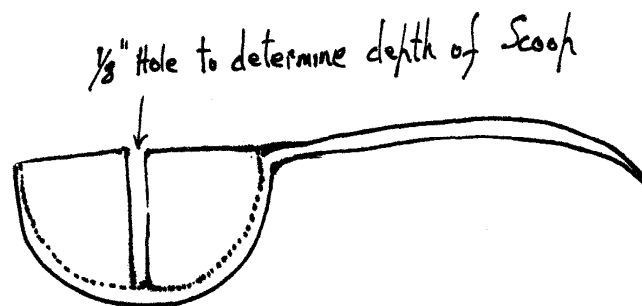 ⅛" Hole to determine depth of Scoop